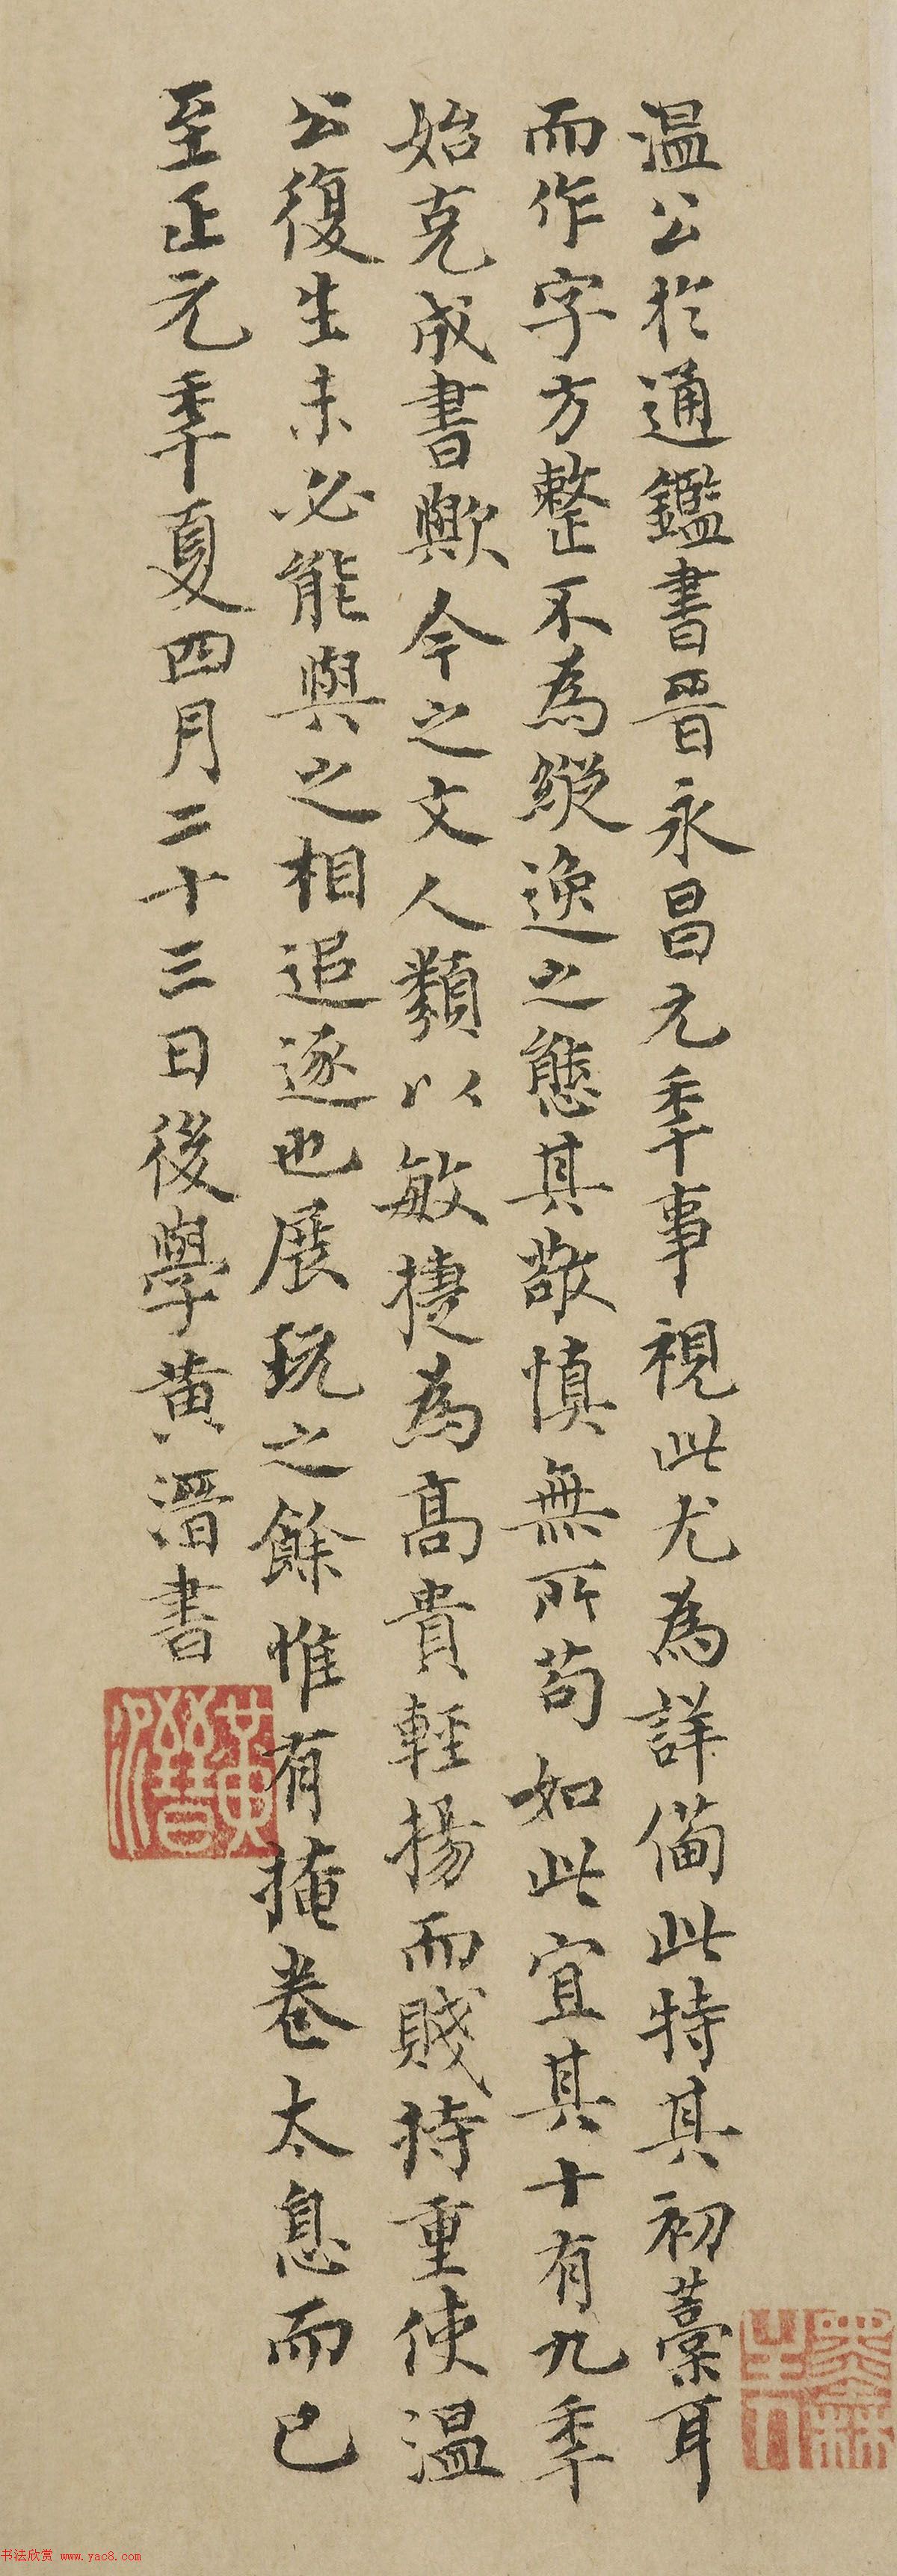 温公於通鑑書晉永昌元季事視此尤為詳備此特其初藁耳
而作字方整不為縱逸之態其敬慎無所苟如此宜其十有九季
始克成書歟今之文人類以敏捷為高貴輕揚而賤持重使温
公復生未必能與之相追逐也展玩之餘惟有掩卷太息而已
至正元季夏四月二十三日後學黄溍書
黄溍
书法欣赏 www.yac8.com